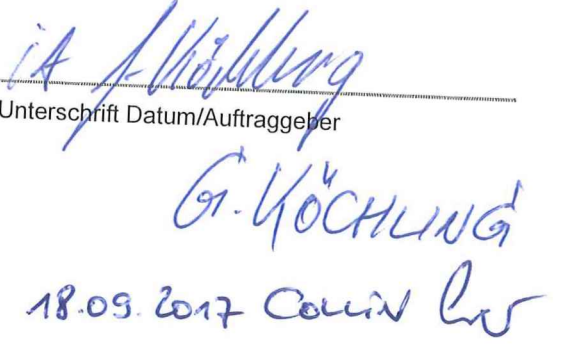 iA G. Köchling
Unterschrift Datum/Auftraggeber
G. KÖCHLING
18.09.2017 Collin